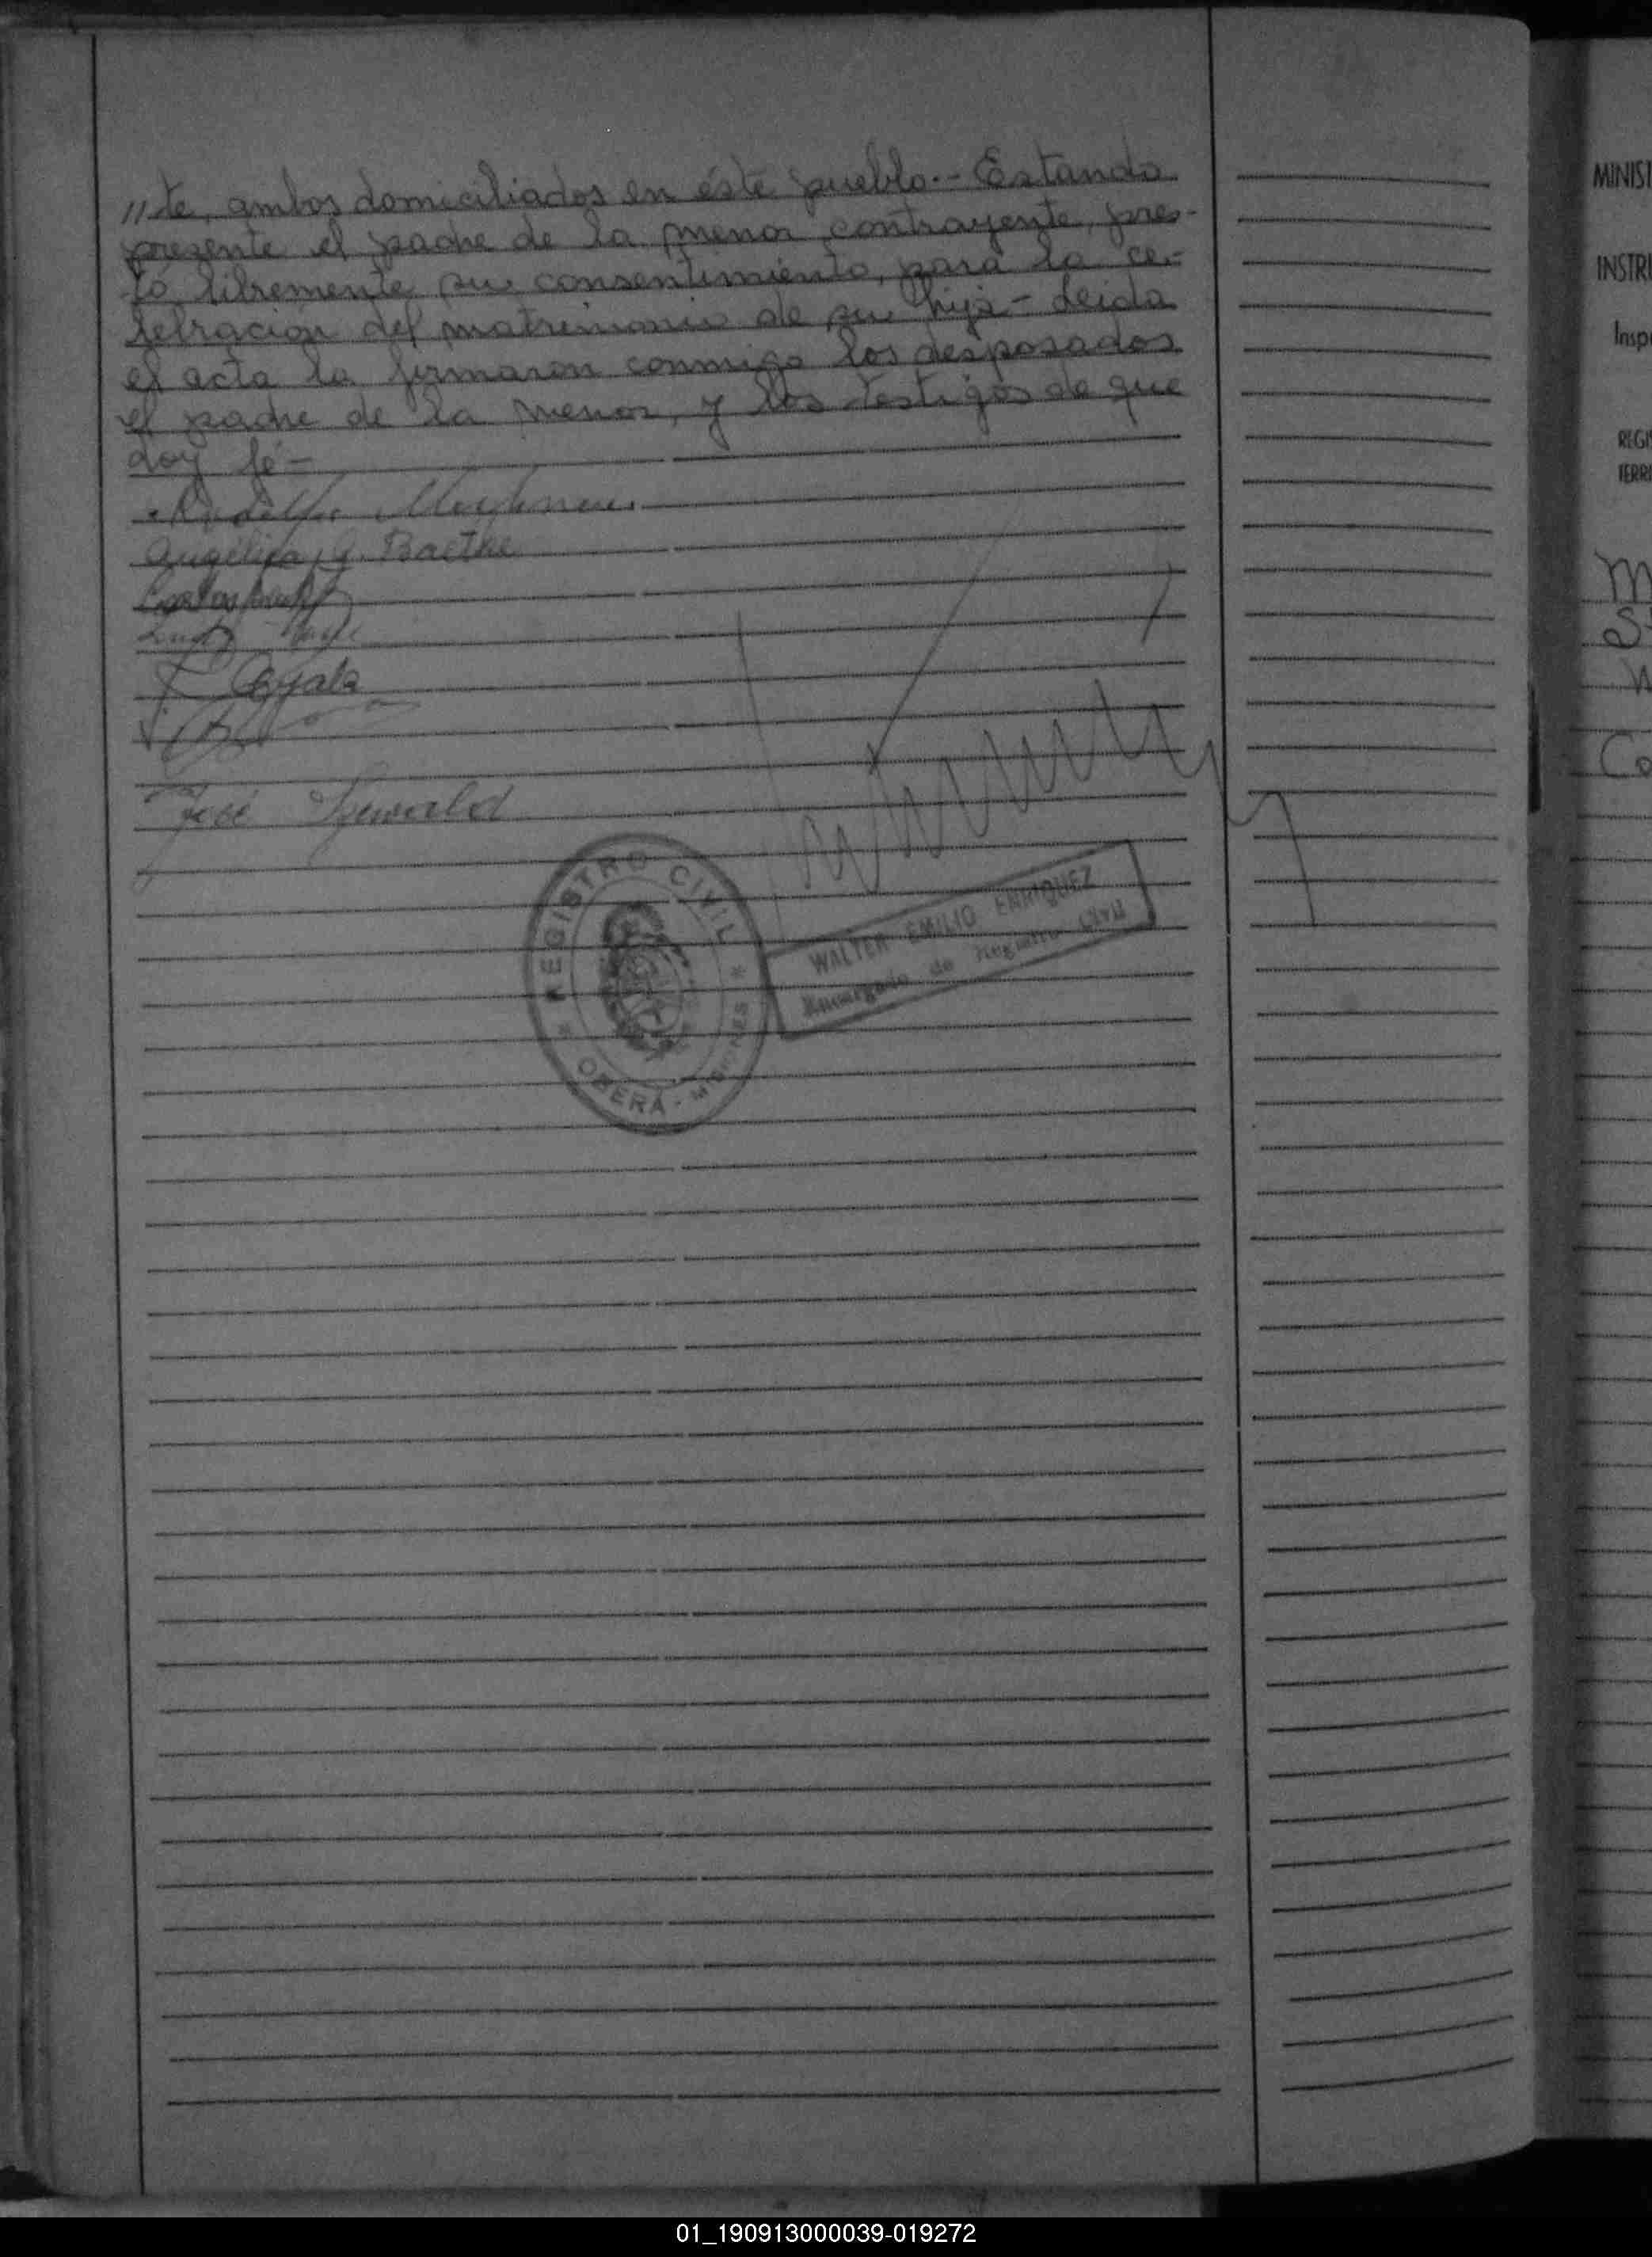 //te, ambos domiciliados en éste pueblo.- Estando
presente el padre de la menor contrayente, pres-
tó libremente su consentimiento, para la ce-
lebración del matrimonio de su hija - Leida
el acta la firmaron conmigo los desposados
el padre de la menor, y los testigos de que
doy fé -
Rodolfo
Angélica G. Baethe
Carlos
Ayala
José
REGISTRO CIVIL
OBERÁ - MISIONES
WALTER EMILIO ENRIQUEZ
Encargado de Registro Civil
MINIST
INSTRU
Insp
REGIS
TERRI
M
S
Co
01_190913000039-019272